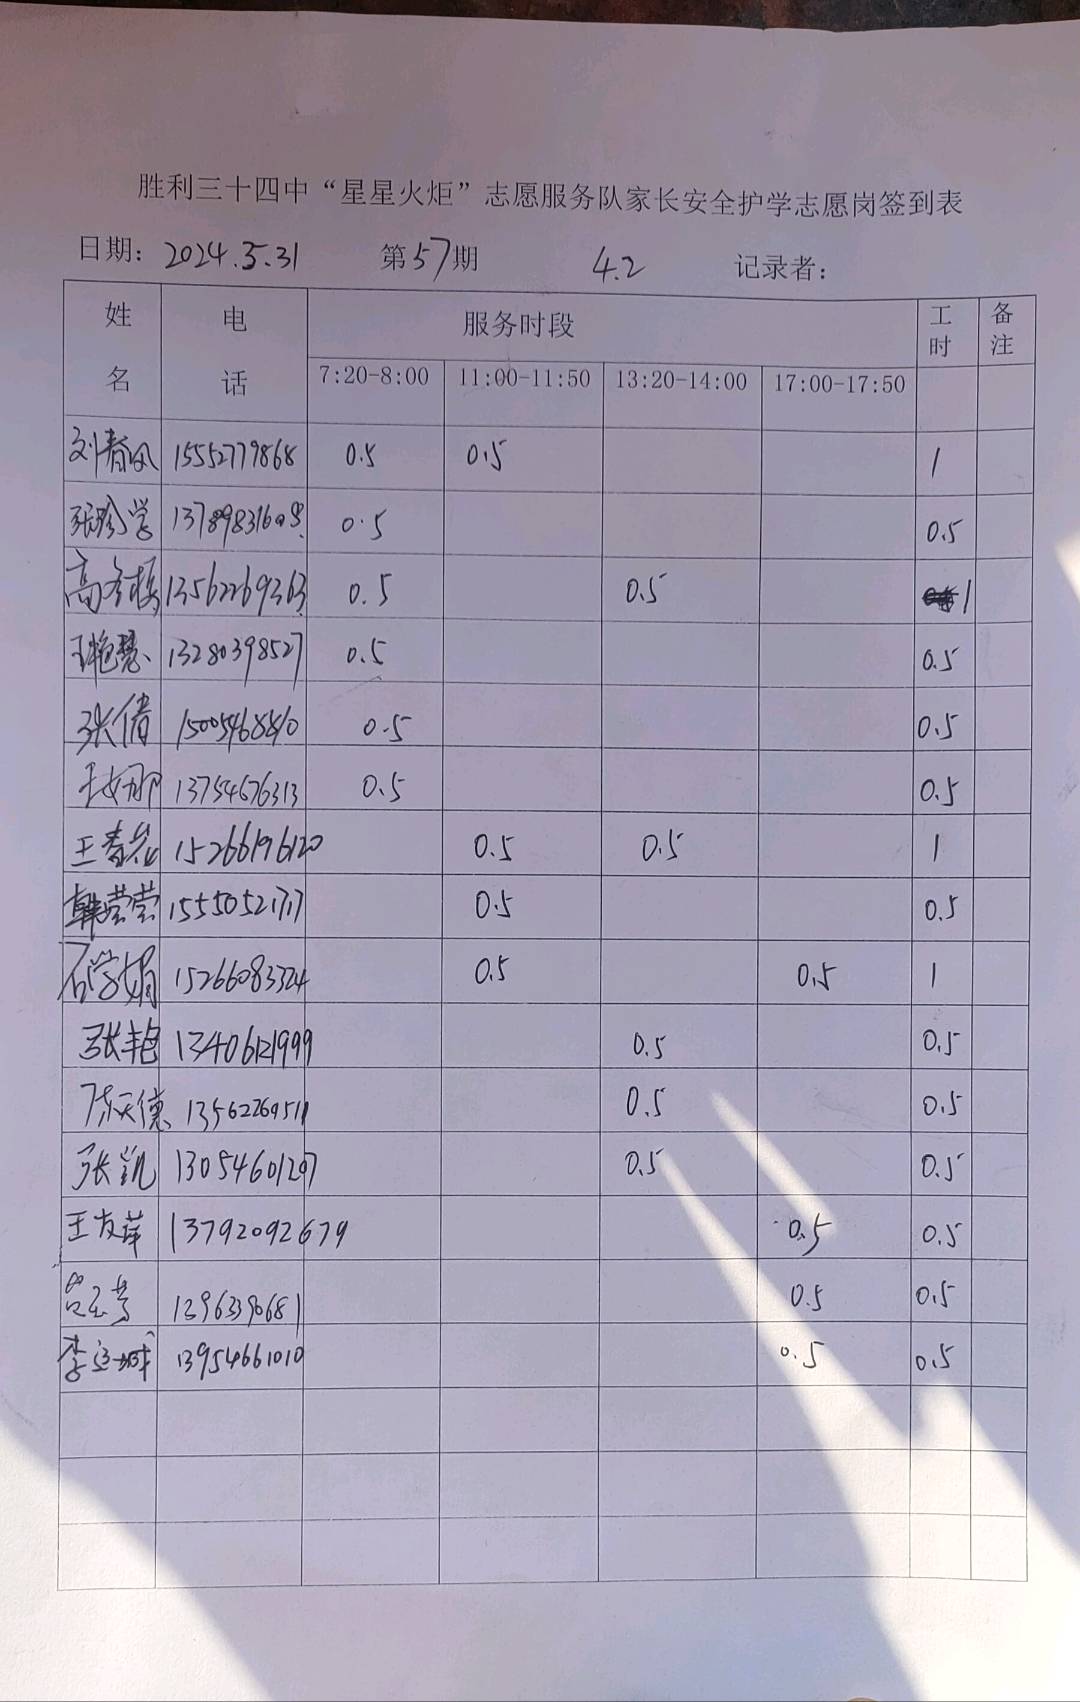 胜利三十四中“星星火炬”志愿服务队家长安全护学志愿岗签到表
日期: 2024.5.31 第57期 4.2 记录者:
姓名 电话 服务时段 工时 备注
7:20-8:00 11:00-11:50 13:20-14:00 17:00-17:50
刘春风 15552779868 0.5 0.5 1
0.5 0.5
13562269363 0.5 0.5 1
王艳慧 13280398527 0.5 0.5
张倩 0.5 0.5
王娜 13754676313 0.5 0.5
王春花 15266196120 0.5 0.5 1
韩莹莹 15550521717 0.5 0.5
石学娟 15266083324 0.5 0.5 1
张艳 13406121999 0.5 0.5
陈天德 13562269511 0.5 0.5
张凯 13054601207 0.5 0.5
王友萍 13792092679 0.5 0.5
0.5 0.5
李 13954661010 0.5 0.5